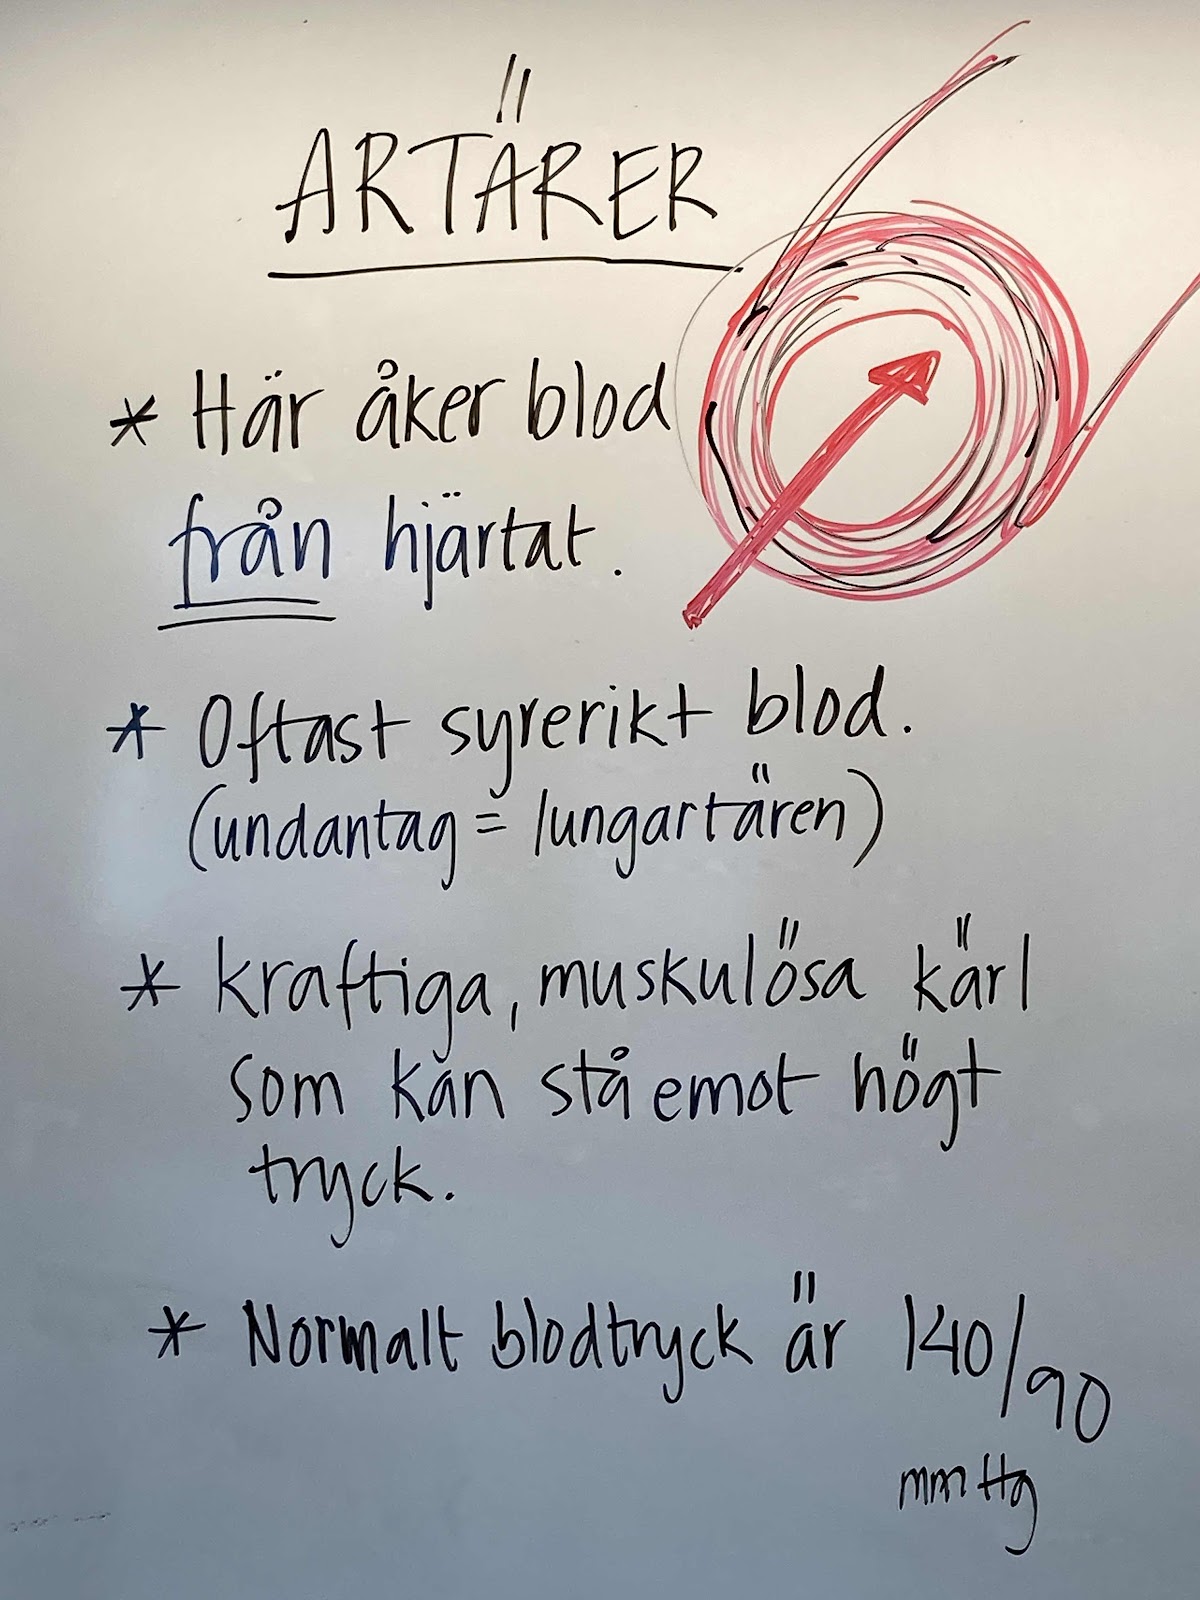 ARTÄRER
* Här åker blod
från hjärtat.
* Oftast syrerikt blod.
(undantag = lungartären)
* kraftiga, muskulösa kärl
som kan stå emot högt
tryck.
* Normalt blodtryck är 140/90
mmHg